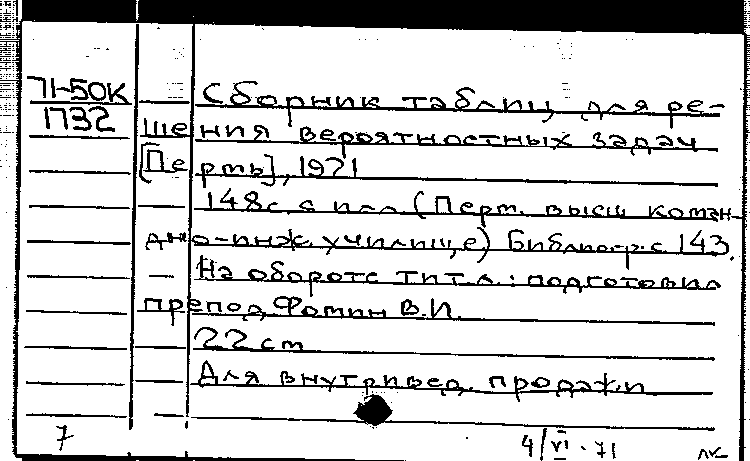 71-50К Сборник таблиц для ре-
1732 шения вероятностных задач
[Пермь], 1971
148с. с илл. (Перм. высш коман-
дно-инж. училище) Библиогр. с. 143.
На обороте тит. л.: подготовил
препод. Фомин В.И.
22 см
Для внутривед. продажи
7 4/VI - 71